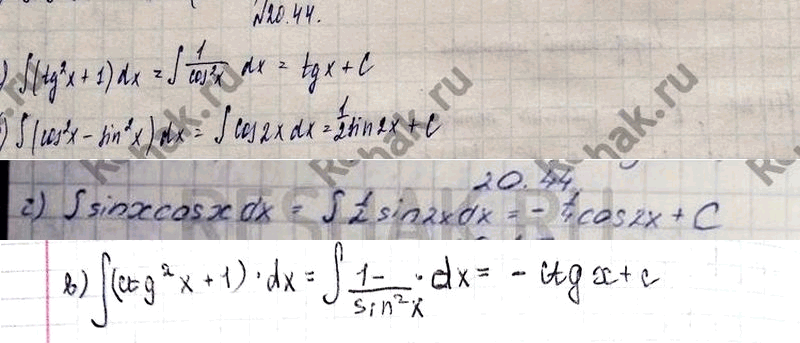 №20.44.
) ∫(tg²x + 1) dx = ∫ 1/cos²x dx = tgx + C
) ∫(cos²x - sin²x) dx = ∫cos2x dx = 1/2 sin2x + C
20.44
г) ∫sinxcosx dx = ∫ 1/2 sin2x dx = - 1/4 cos2x + C
в) ∫(ctg²x + 1)·dx = ∫ 1/sin²x · dx = - ctg x + c